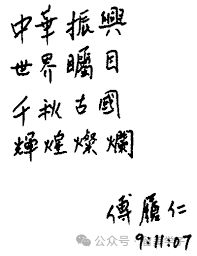 中華振興
世界矚目
千秋古國
輝煌燦爛
傅履仁
9:11:07
公众号